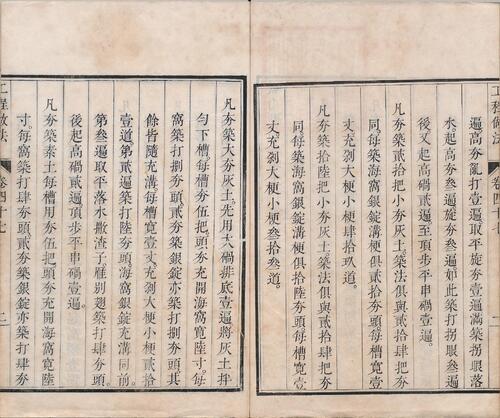 工程做法 卷四十七
遍高夯亂打壹遍旋夯壹遍滿築拐眼落
水。起高夯叁遍旋夯叁遍如此築打拐眼叁遍
後又起高硪貳遍至頂步平串硪壹遍。
凡夯築貳拾把小夯灰土築法俱與貳拾肆把夯
同。每築海窩銀錠溝梗俱貳拾夯頭每槽寬壹
丈充剁大梗小梗肆拾玖道。
凡夯築拾陸把小夯灰土築法俱與貳拾肆把夯
同。每築海窩銀錠溝梗俱拾陸夯頭每槽寬壹
丈充剁大梗小梗叁拾叁道。
凡夯築大夯灰土先用大硪排底壹遍將灰土拌
勻下槽每槽夯伍把頭夯充開海窩寬陸寸。每
窩築打捌夯頭貳夯築銀錠亦築打捌夯頭其
餘皆隨充溝每槽寬壹丈充剁大梗小梗貳拾
壹道第貳遍築打陸夯頭海窩銀錠充溝同前。
第叁遍取平落水撒渣子雁別翅築打肆夯頭。
後起高硪貳遍頂步平串硪壹遍。
凡夯築素土每槽用夯伍把頭夯充開海窩寬陸
寸。每窩築打肆夯頭貳夯築銀錠亦築打肆夯
工程做法 卷四十七 二